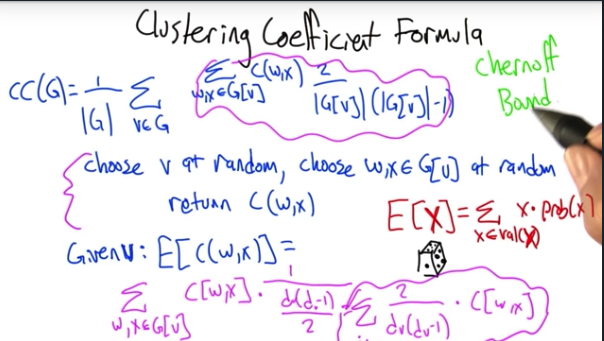 Clustering Coefficient Formula
CC(G) = 1/|G| Σ_{v∈G} Σ_{w,x∈G[v]} C(w,x) 2/(|G[v]|(|G[v]|-1))
Chernoff
Bound
choose v at random, choose w,x∈G[v] at random
return C(w,x)
E[X] = Σ_{x∈val(X)} x·prob(x)
Given v: E[C(w,x)] =
Σ_{w,x∈G[v]} C[w,x] · 1/(dv(dv-1)/2)
Σ 2/(dv(dv-1)) · C[w,x]